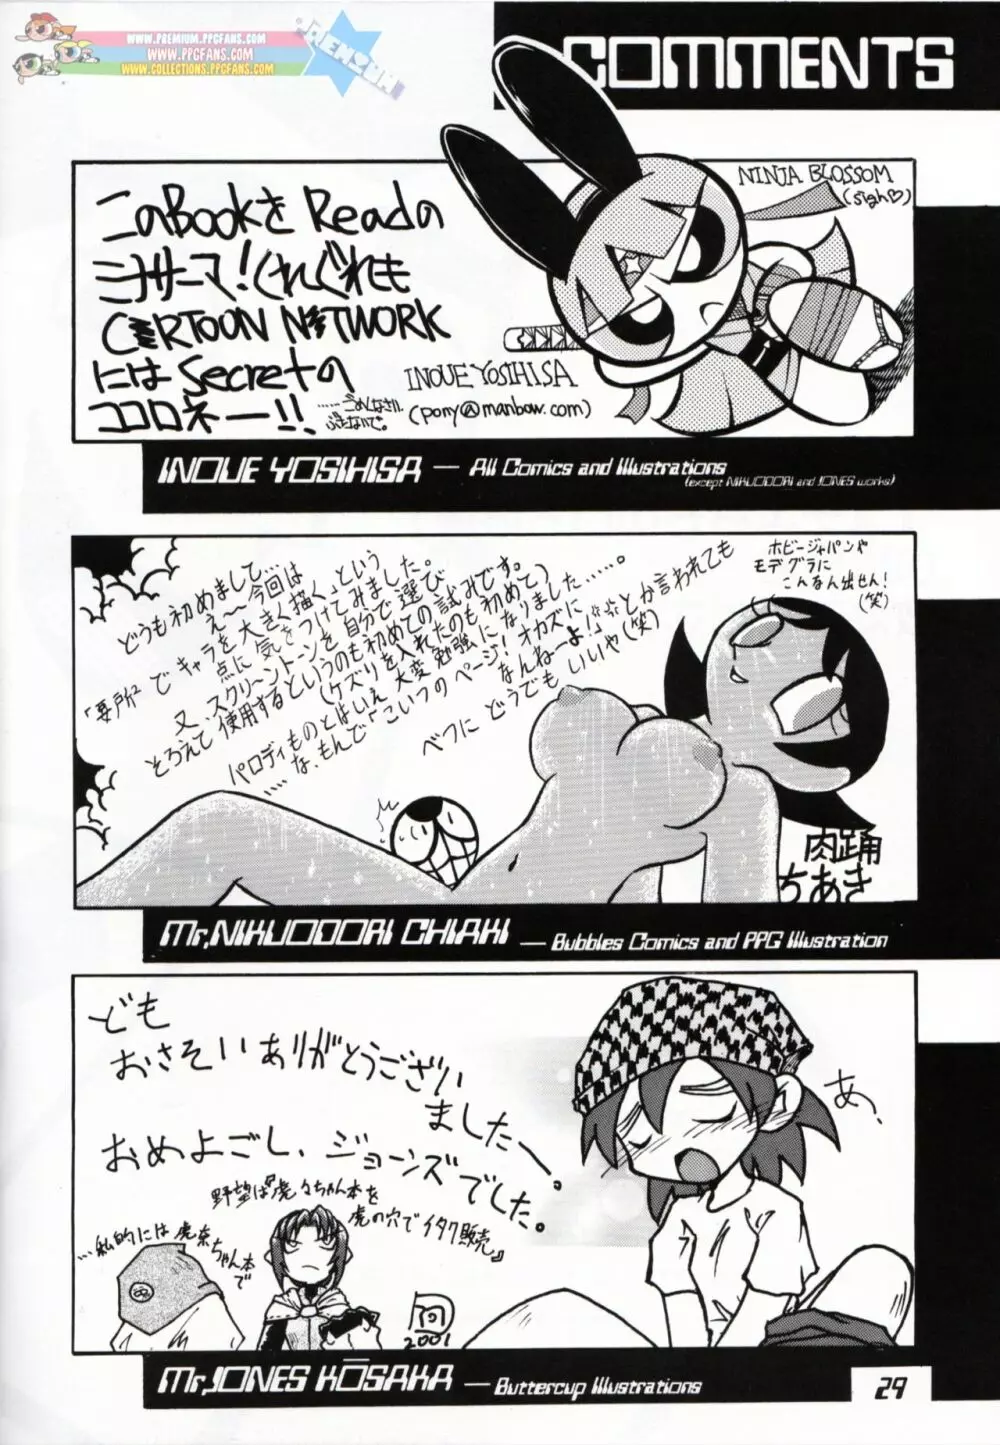 WWW.PREMIUM.PPGFANS.COM
WWW.PPGFANS.COM
WWW.COLLECTIONS.PPGFANS.COM
PREMIUM
COMMENTS
NINJA BLOSSOM
(sigh♡)
このBookを Readの
ミナサーマ!くれぐれも
CERTOON NETWORK
には Secretの
ココロネー!!
……ごめんなさい。
ぶたないで。
INOUE YOSIHISA
(pony@manbow.com)
INOUE YOSIHISA — All Comics and Illustrations
(except NIKUODORI and JONES works)
どうも初めまして…
え〜今回は
「要所」でキャラを大きく描く、という
点に気をつけてみました。
又、スクリーントーンを自分で選び
そろえて使用するというのも初めての試みです。
(ケズリを入れたのも初めて)
パロディものとはいえ大変勉強になりました……。
……な、もんで「こいつのページ!オカズに
なんねーよ!」とか言われても
べつにどうでもいいや(笑)
ホビージャパンや
モデグラに
こんなん出せん!
(笑)
肉踊
ちあき
Mr,NIKUODORI CHIAKI — Bubbles Comics and PPG Illustration
ども
おさそいありがとうござい
ましたー。
おめよごし、ジョーンズでした。
野望は『虎々ちゃん本を
虎の穴でイタク販売』
…私的には虎奈ちゃん本
で
あ、
2001
Mr,JONES KŌSAKA — Buttercup Illustrations
29